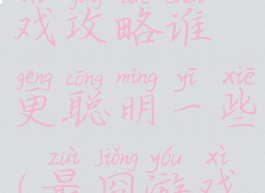 戏攻略谁
gèng cōng míng yī xiē
更聪明一些
zuì jiǒng yóu xì
(最囧游戏